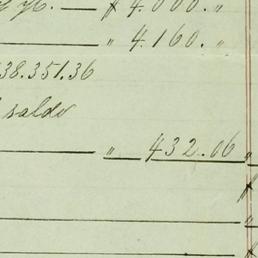 $ 4.000. "
" 4.160. "
38.351.36
saldo
" 432.06 "